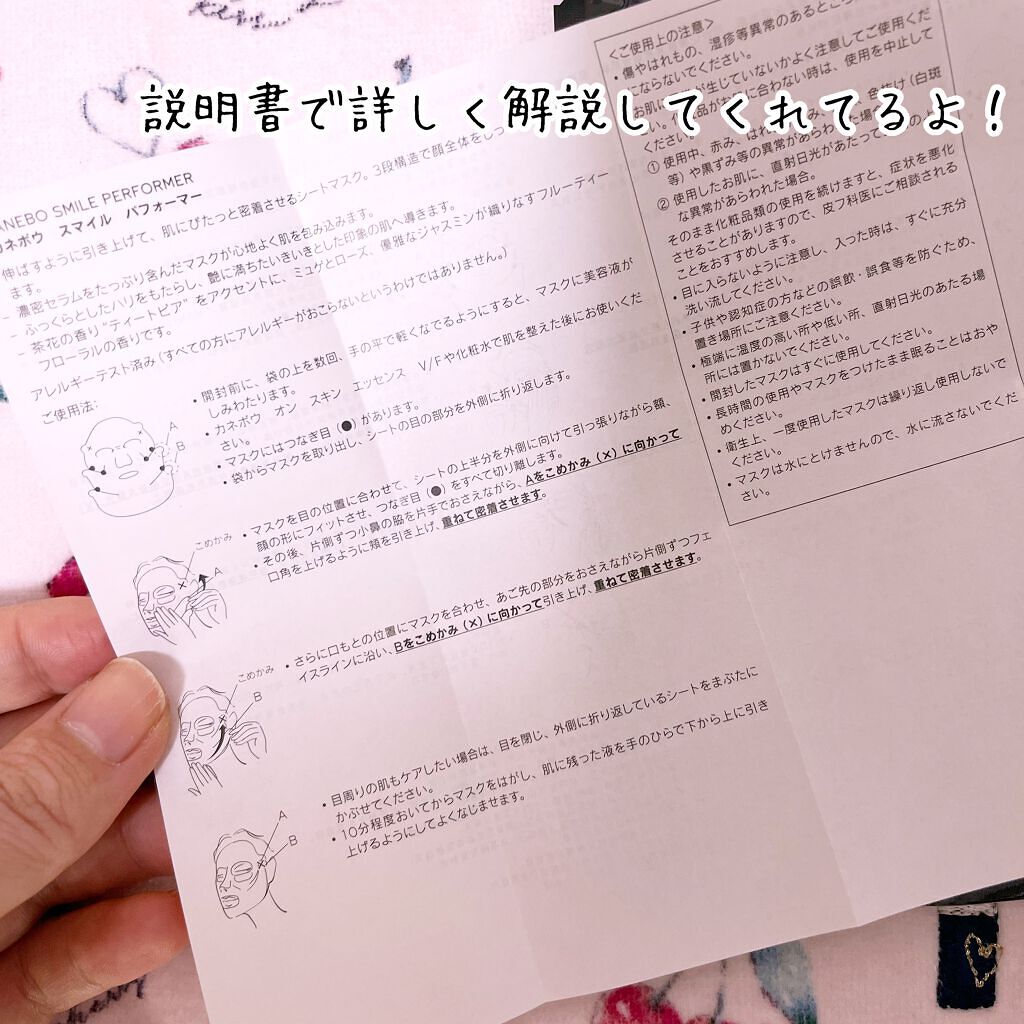 説明書で詳しく解説してくれてるよ！
ANEBO SMILE PERFORMER
カネボウ スマイル パフォーマー
伸ばすように引き上げて、肌にぴたっと密着させるシートマスク。3段構造で顔全体をしっ
ます。
- 濃密セラムをたっぷり含んだマスクが心地よく肌を包み込みます。
ふっくらとしたハリをもたらし、艶に満ちたいきいきとした印象の肌へ導きます。
- 茶花の香り“ティートピア”をアクセントに、ミュゲとローズ、優雅なジャスミンが織りなすフルーティー
フローラルの香りです。
アレルギーテスト済み(すべての方にアレルギーがおこらないというわけではありません。)
ご使用法:
A
B
• 開封前に、袋の上を数回、手の平で軽くなでるようにすると、マスクに美容液が
しみわたります。
• カネボウ オン スキン エッセンス V/Fや化粧水で肌を整えた後にお使いくだ
さい。
• マスクにはつなぎ目(●)があります。
• 袋からマスクを取り出し、シートの目の部分を外側に折り返します。
こめかみ
A
• マスクを目の位置に合わせて、シートの上半分を外側に向けて引っ張りながら額、
顔の形にフィットさせ、つなぎ目(●)をすべて切り離します。
• その後、片側ずつ小鼻の脇を片手でおさえながら、Aをこめかみ(×)に向かって
口角を上げるように頬を引き上げ、重ねて密着させます。
こめかみ
B
• さらに口もとの位置にマスクを合わせ、あご先の部分をおさえながら片側ずつフェ
イスラインに沿い、Bをこめかみ(×)に向かって引き上げ、重ねて密着させます。
A
B
• 目周りの肌もケアしたい場合は、目を閉じ、外側に折り返しているシートをまぶたに
かぶせてください。
• 10分程度おいてからマスクをはがし、肌に残った液を手のひらで下から上に引き
上げるようにしてよくなじませます。
<ご使用上の注意>
• 傷やはれもの、湿疹等異常のあるところ
にならないでください。
お肌に
が生じていないかよく注意してご使用くだ
さい。
品がお肌に合わない時は、使用を中止して
ください。
① 使用中、赤み、はれ
色抜け(白斑
等)や黒ずみ等の異常があらわれた場
② 使用したお肌に、直射日光があたって
な異常があらわれた場合。
そのまま化粧品類の使用を続けますと、症状を悪化
させることがありますので、皮フ科医にご相談される
ことをおすすめします。
• 目に入らないように注意し、入った時は、すぐに充分
洗い流してください。
• 子供や認知症の方などの誤飲・誤食等を防ぐため、
置き場所にご注意ください。
• 極端に温度の高い所や低い所、直射日光のあたる場
所には置かないでください。
• 開封したマスクはすぐに使用してください。
• 長時間の使用やマスクをつけたまま眠ることはおや
めください。
• 衛生上、一度使用したマスクは繰り返し使用しないで
ください。
• マスクは水にとけませんので、水に流さないでくだ
さい。